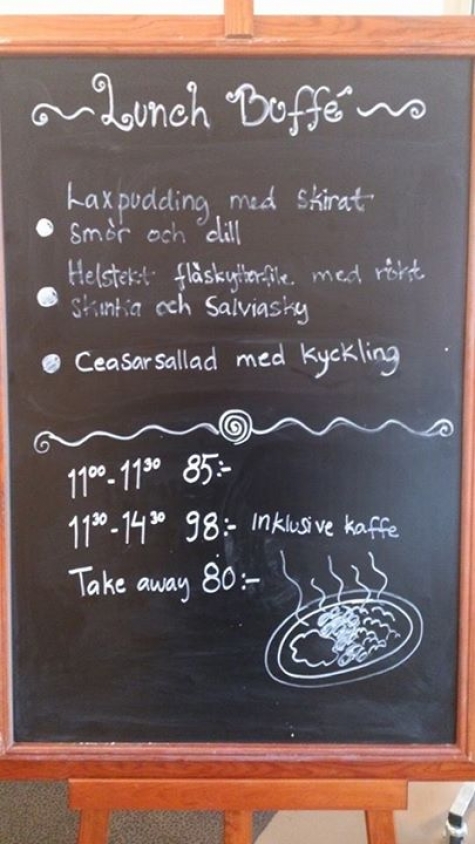 Lunch Buffé
Laxpudding med skirat
smör och dill
Helstekt fläskytterfile med rökt
skinka och Salviasky
Ceasarsallad med kyckling
11⁰⁰-11³⁰ 85:-
11³⁰-14³⁰ 98:- Inklusive kaffe
Take away 80:-